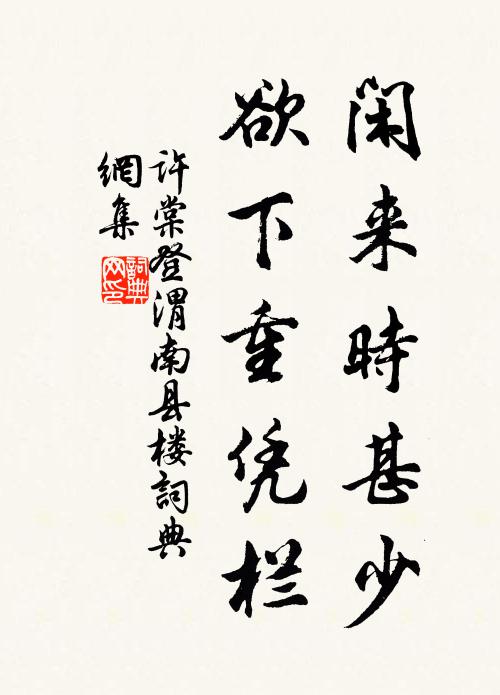 闲来時甚少
欲下重凭栏
许棠登渭南县楼詞典
網集
詞典
网印